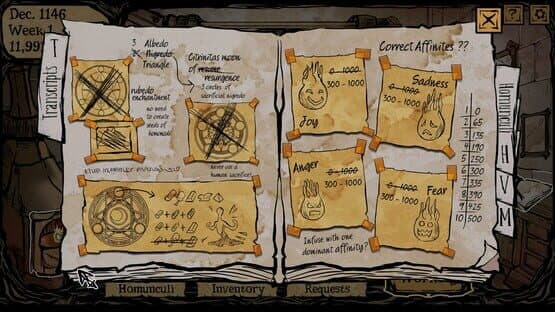 Dec. 1146
Week 1
11,99
Transcripts
T
3 Albedo
Nigredo
Triangle
rubedo
enchantment
no need
to create
seeds of
homunculi
Citrinitas moon
of
resurgence
3 circles of
sacrificial nigredo
Never use a
human sacrifice!
Correct Affinites ??
0-1000
300 - 1000
Joy
Sadness
0-1000
300 - 1000
Anger
0-1000
300 - 1000
0-1000
300 - 1000
Fear
Infuse with one
dominant affinity?
1 0
2 65
3 135
4 190
5 250
6 300
7 335
8 390
9 425
10 500
Homunculi
H
V
M
Homunculi
Inventory
Requests
?